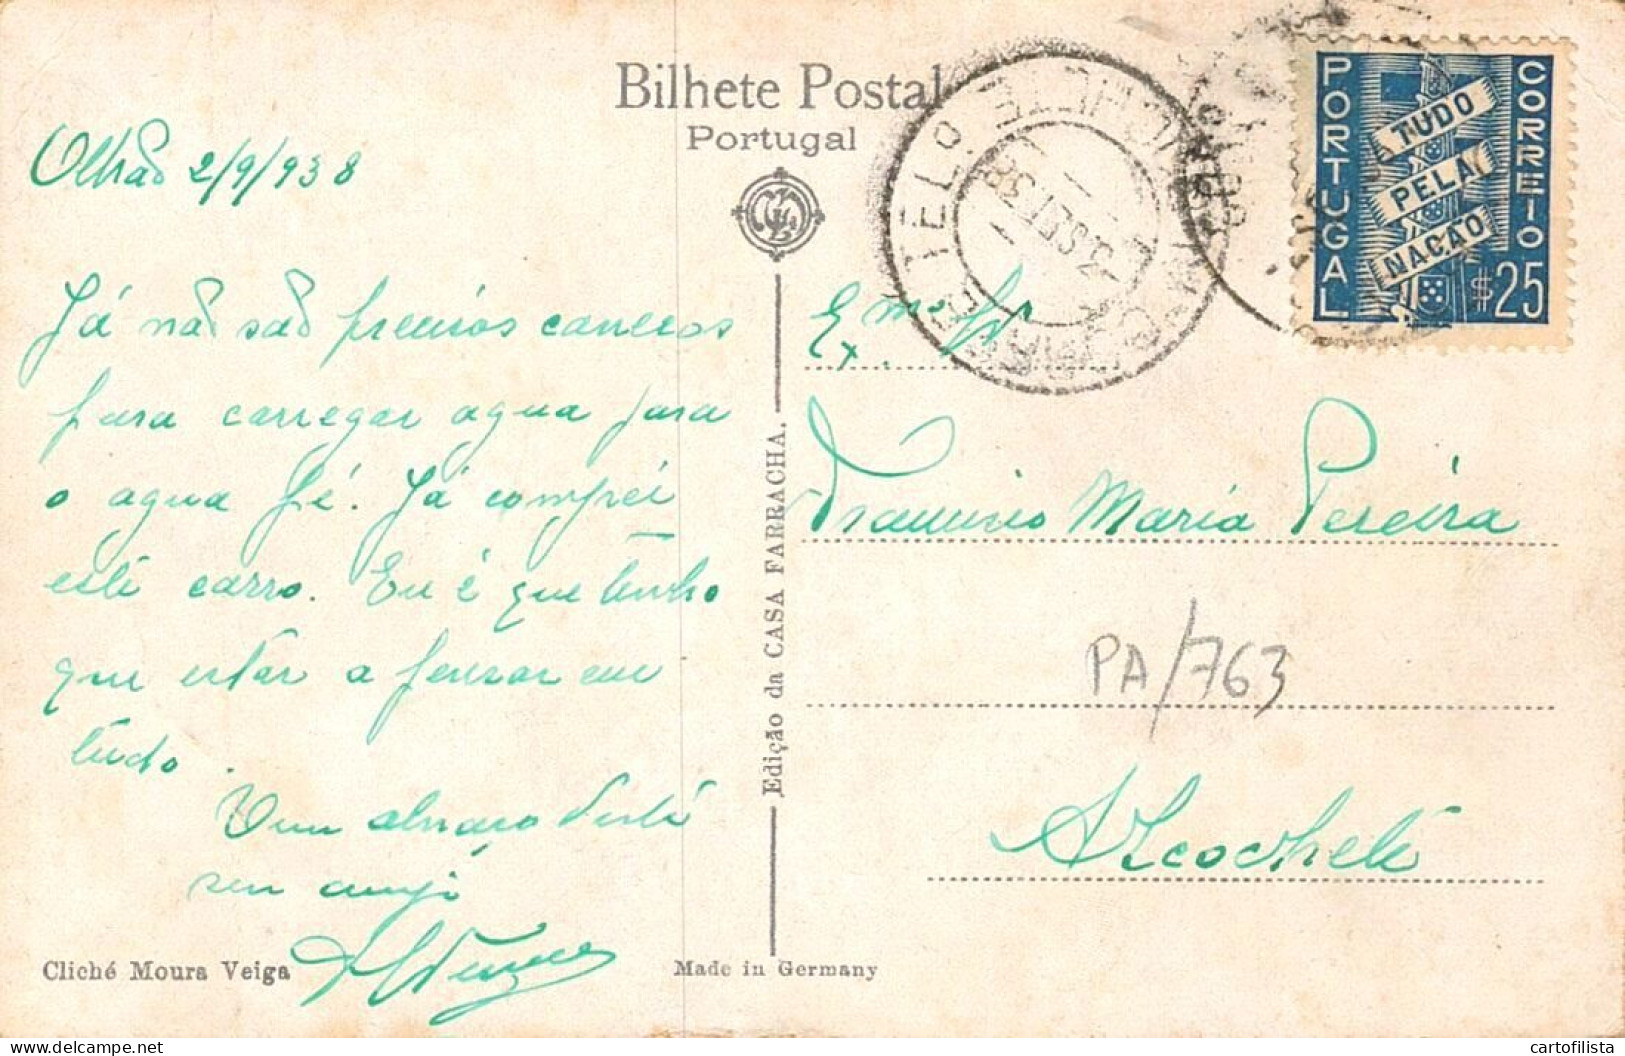 Bilhete Postal
Portugal
PORTUGAL
CORREIO
TUDO
PELA
NAÇÃO
$25
Olhão 2/9/938
Já não são precisos canecos
para carregar agua para
o agua pé. Já comprei
este carro. Eu é que tenho
que estar a pensar em
tudo.
Um abraço deste
seu amigo
Exmo Sr
Francisco Maria Pereira
PA/763
Alcochete
Edição da CASA FARRACHA.
Cliché Moura Veiga
Made in Germany
3.SET.38
cartofilista